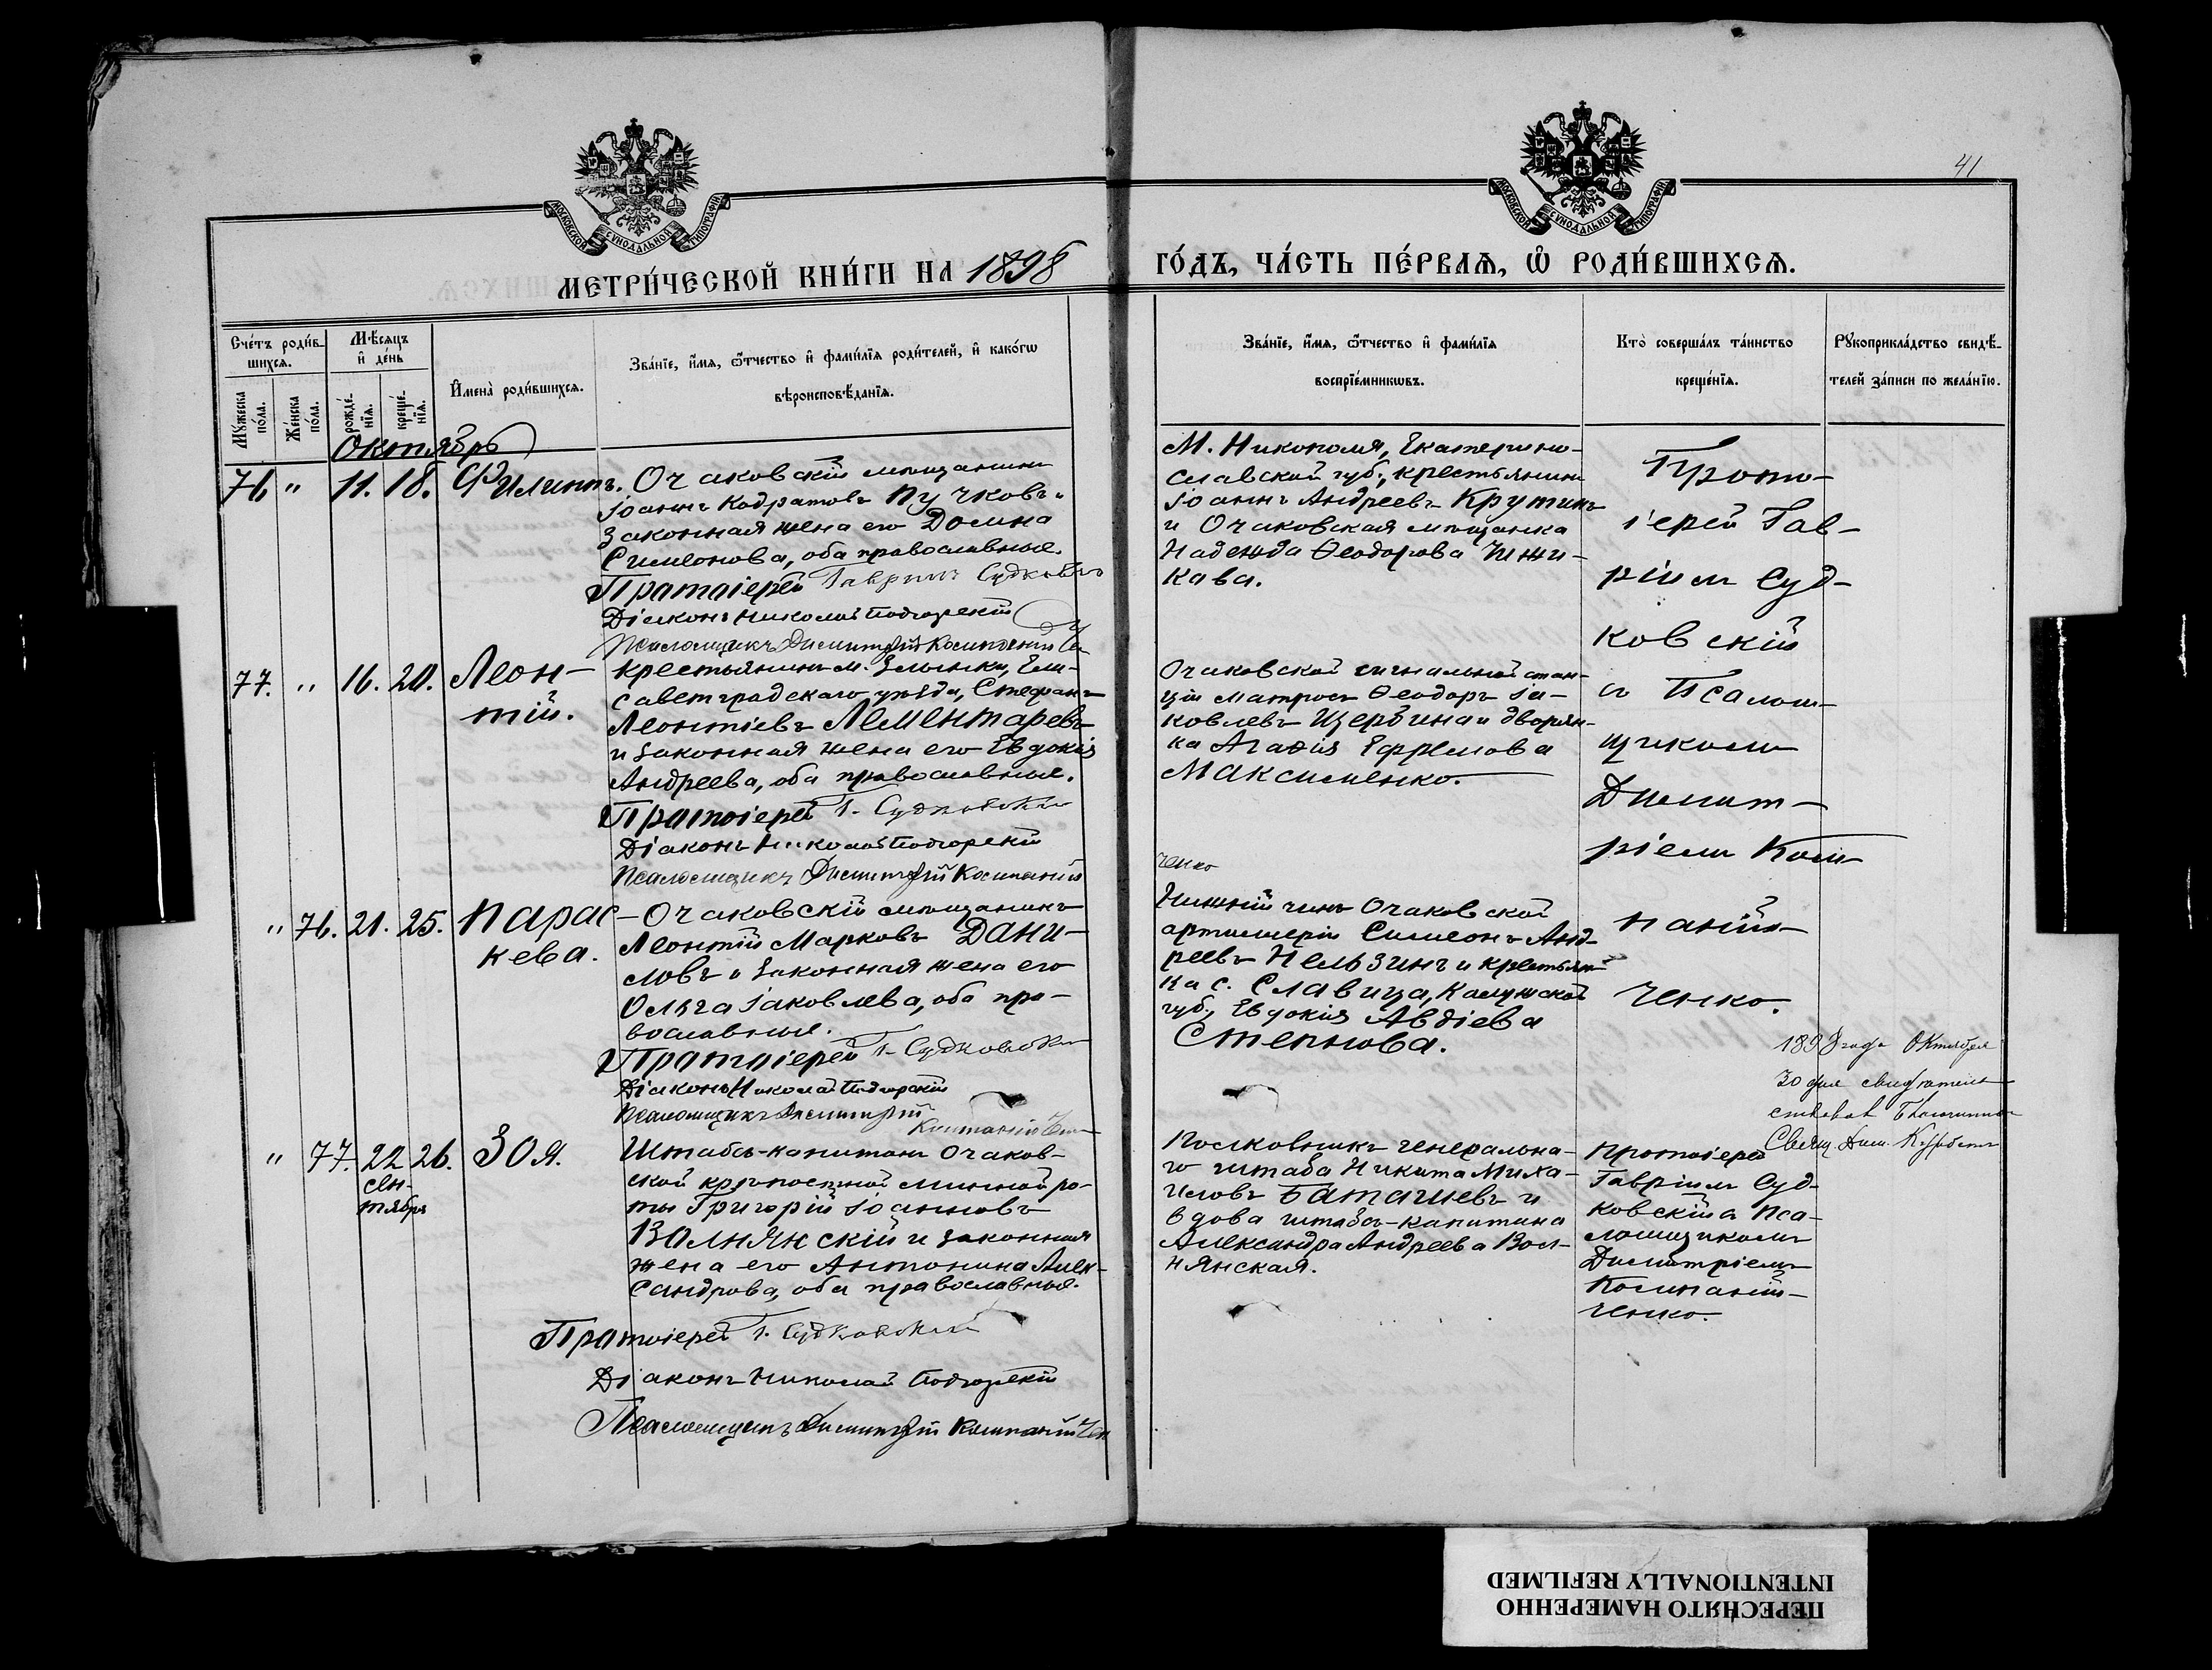 41
МОСКОВСКОЙ СѴНОДАЛЬНОЙ ТИПОГРАФІИ
МОСКОВСКОЙ СѴНОДАЛЬНОЙ ТИПОГРАФІИ
МЕТРИ́ЧЕСКОЙ КНИ́ГИ НА 1898
ГО́ДЪ, ЧА́СТЬ ПЕ́РВАѦ, Ѿ РОДИ́ВШИХСѦ.
Сче́тъ роди́в-
шихсѧ.
Мꙋ́жеска по́ла.
Же́нска по́ла.
Мѣ́сѧцъ и҆ де́нь
рожде́-нїѧ.
креще́-нїѧ.
И҆мена̀ роди́вшихсѧ.
Зва́нїе, и҆́мѧ, ѻ҆́тчество и҆ фами́лїѧ роди́телей, и҆ како́гѡ
вѣроисповѣ́данїѧ.
Зва́нїе, и҆́мѧ, ѻ҆́тчество и҆ фами́лїѧ
воспрїе́мникѡвъ.
Кто̀ соверша́лъ та́инство
креще́нїѧ.
Рꙋкоприкла́дство свидѣ́-
телей за́писи по жела́нїю.
Октябрь
76 " 11. 18. Филиппъ.
Очаковскій мѣщанинъ
Іоаннъ Кодратовъ Пучковъ и
законная жена его Домна
Симеонова, оба православные.
Протоіерей Гавріилъ Судковскій
Діаконъ Николай Подгорскій
Псаломщикъ Димитрій Компанійче
М. Никополя, Екатерино-
славской губ., крестьянинъ
Іоаннъ Андреевъ Крутинъ
и Очаковская мѣщанка
Надежда Ѳеодорова Чижи-
кава.
Прото-
іерей Гав-
ріилъ Суд-
ковскій
съ Псалом-
щикомъ
Димит-
ріемъ Ком-
панiй-
ченко.
77. " 16. 20. Леон-
тій.
Крестьянинъ м. Злынки, Ели-
саветградскаго уѣзда, Стефанъ
Леонтіевъ Лементаревъ
и законная жена его Евдокія
Андреева, оба православные.
Протоіерей Г. Судковскій
Діаконъ Николай Подгорскій
Псаломщикъ Димитрій Компаній
ченко
Очаковской сигнальной стан-
ціи матросъ Ѳеодоръ Іа-
ковлевъ Щербина и дворян-
ка Агафія Ефремова
Максименко.
" 76. 21. 25. Парас-
кева.
Очаковскій мѣщанинъ
Леонтій Марковъ Дани-
ловъ и законная жена его
Ольга Іаковлева, оба пра-
вославные.
Протоіерей Г. Судковскій
Діаконъ Николай Подгорскій
Псаломщикъ Димитрій
Компанійчен
Нижній чинъ Очаковской
артиллеріи Симеонъ Анд-
реевъ Нельзинъ и крестьян-
ка с. Славица, Калужской
губ., Евдокія Авдіева
Степнова.
1898 года Октября
30 дня свидѣтель-
ствовалъ Благочинный
Свящ.
" 77. 22 26. Зоя.
сен-
тября
Штабсъ-капитанъ Очаков-
ской крѣпостной минной ро-
ты Григорій Іоанновъ
Волнянскій и законная
жена его Антонина Алек-
сандрова, оба православные.
Протоіерей Г. Судковскій
Діаконъ Николай Подгорскій
Псаломщикъ Димитрій Компанійчен
Полковникъ генеральна-
го штаба Никита Миха-
иловъ Баташевъ и
вдова штабсъ-капитана
Александра Андреева Вол-
нянская.
Протоіерей
Гавріилъ Суд-
ковскій съ Пса-
ломщикомъ
Димитріемъ
Компаній-
ченко.
ПЕРЕСНЯТО НАМЕРЕННО
INTENTIONALLY REFILMED